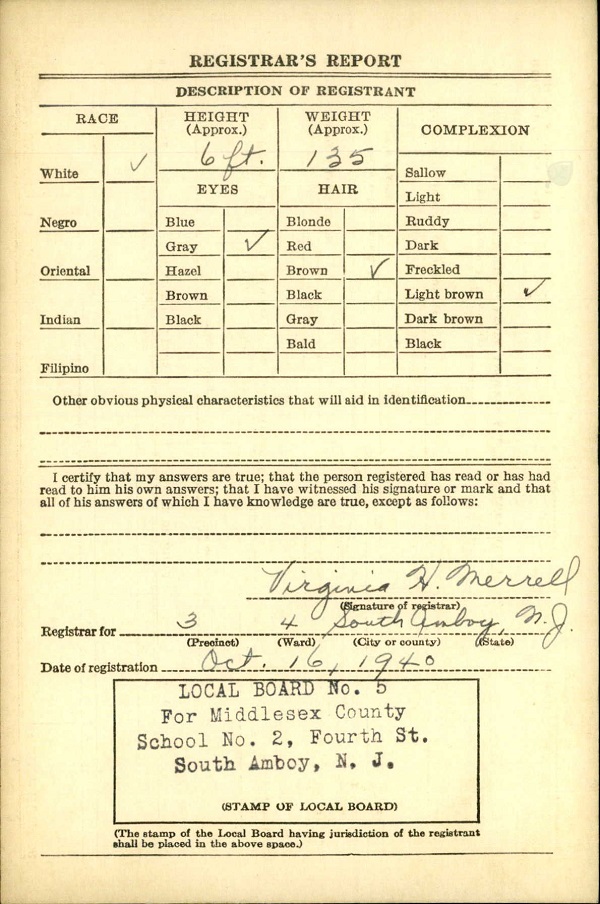 REGISTRAR'S REPORT
DESCRIPTION OF REGISTRANT
RACE
HEIGHT (Approx.)
WEIGHT (Approx.)
COMPLEXION
6 ft.
135
White ✓
Sallow
EYES
HAIR
Light
Negro
Blue
Blonde
Ruddy
Gray ✓
Red
Dark
Oriental
Hazel
Brown ✓
Freckled
Brown
Black
Light brown ✓
Indian
Black
Gray
Dark brown
Bald
Black
Filipino
Other obvious physical characteristics that will aid in identification
I certify that my answers are true; that the person registered has read or has had
read to him his own answers; that I have witnessed his signature or mark and that
all of his answers of which I have knowledge are true, except as follows:
Virginia H. Merrell
(Signature of registrar)
Registrar for 3 4 South Amboy, N.J.
(Precinct) (Ward) (City or county) (State)
Date of registration Oct. 16, 1940
LOCAL BOARD No. 5
For Middlesex County
School No. 2, Fourth St.
South Amboy, N. J.
(STAMP OF LOCAL BOARD)
(The stamp of the Local Board having jurisdiction of the registrant
shall be placed in the above space.)